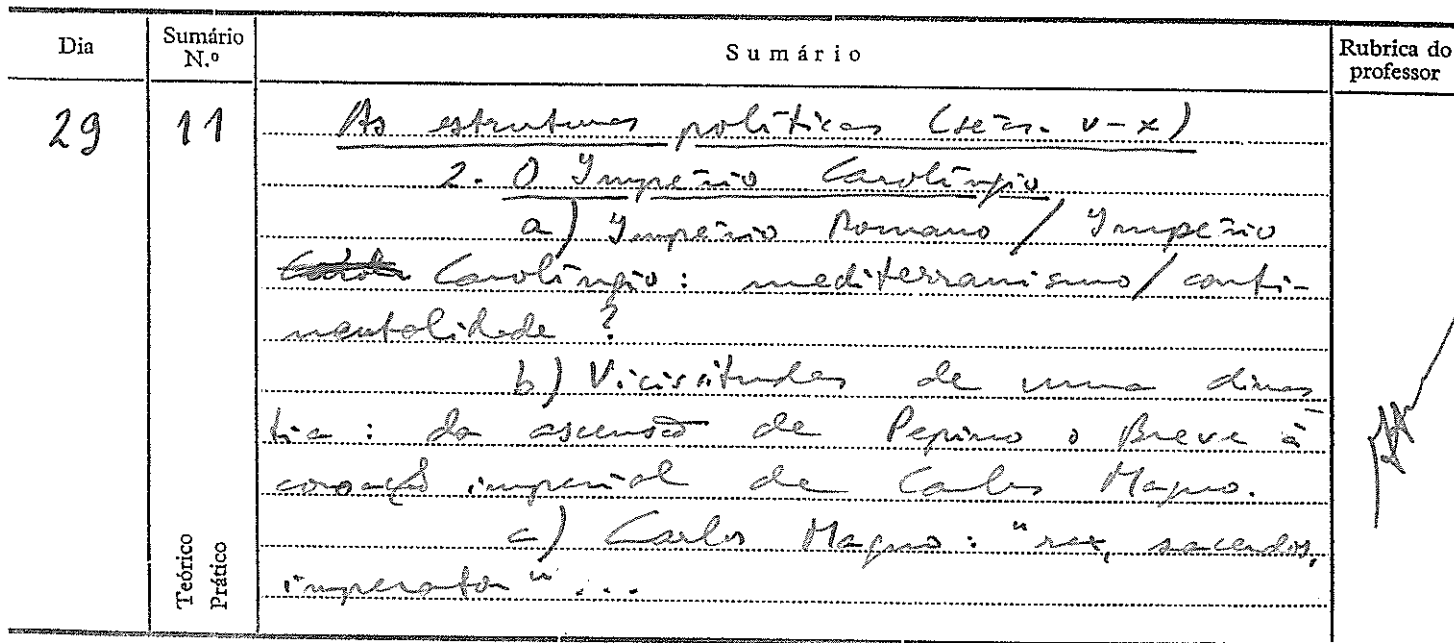 Dia Sumário N.º Sumário Rubrica do professor
29 11 As estruturas políticas (sécs. V-X)
2. O Império Carolíngio
a) Império Romano / Império
Carolíngio: mediterranismo / conti-
nentalidade?
b) Vicissitudes de uma dinas
tia: da ascensão de Pepino o Breve à
coroação imperial de Carlos Magno.
c) Carlos Magno: "rex, sacerdos,
imperator"...
Teórico
Prático